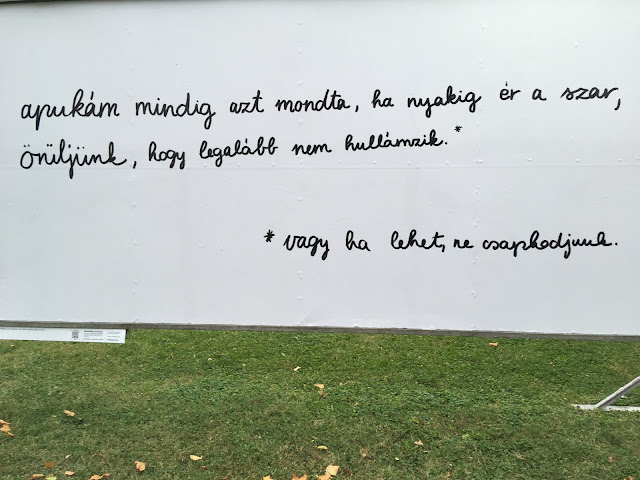 apukám mindig azt mondta, ha nyakig ér a szar,
örüljünk, hogy legalább nem hullámzik.*
* vagy ha lehet, ne csapkodjunk.